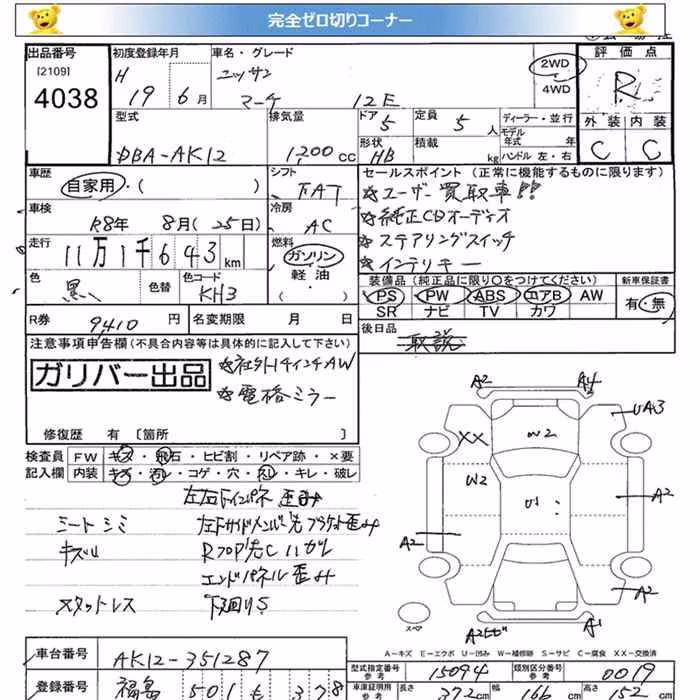 完全ゼロ切りコーナー
出品番号 初度登録年月 車名・グレード 評価点
[2109] H 19年 6月 ニッサン 2WD R
4038 マーチ 12E 4WD
型式 排気量 ドア 5 定員 5人 ディーラー・並行 外装 内装
DBA-AK12 1,200cc 形状 HB 積載 kg モデル年式 年 C C
ハンドル 左・右
車歴 自家用・( ) シフト FAT セールスポイント (正常に機能するものに限ります)
☆ユーザー買取車!!
車検 R8年 8月(25日) 冷房 AC ☆純正CDオーディオ
走行 11万1千643km 燃料 ガソリン ☆ステアリングスイッチ
軽油・( ) ☆インテリキー
色 黒 色替 色コード KH3 装備品(純正品に限り○をつけてください) 新車保証書
PS PW ABS エアB AW 有・無
SR ナビ TV カワ
R券 9,410円 名変期限 月 日 後日品
取説
注意事項申告欄(不具合内容等は具体的に記入して下さい)
ガリバー出品 ☆社外14インチAW
☆電格ミラー
修復歴 有 〔箇所 〕
検査員 FW キズ・飛石・ヒビ割・リペア跡・×要
記入欄 内装 キズ・汚レ・コゲ・穴・スレ・キレ・破レ
左右インパネ 歪み
シートシミ 左サイドメンバー先ブラケット歪み
キズ ハガレ
エンドパネル歪み
スタッドレス 下廻りS
A2 A4
UA3
XX W2
W2
U1
A2 A2
A2
スペア
A1
A−キズ E−エクボ U−凹み W−補修跡 S−サビ C−腐食 XX−交換済
車台番号 AK12-351287 型式指定番号 参考 15094 類別区分番号 参考 0019
登録番号 福島 501 も 378 車庫証明用 参考 長さ 372cm 幅 166cm 高さ 152cm